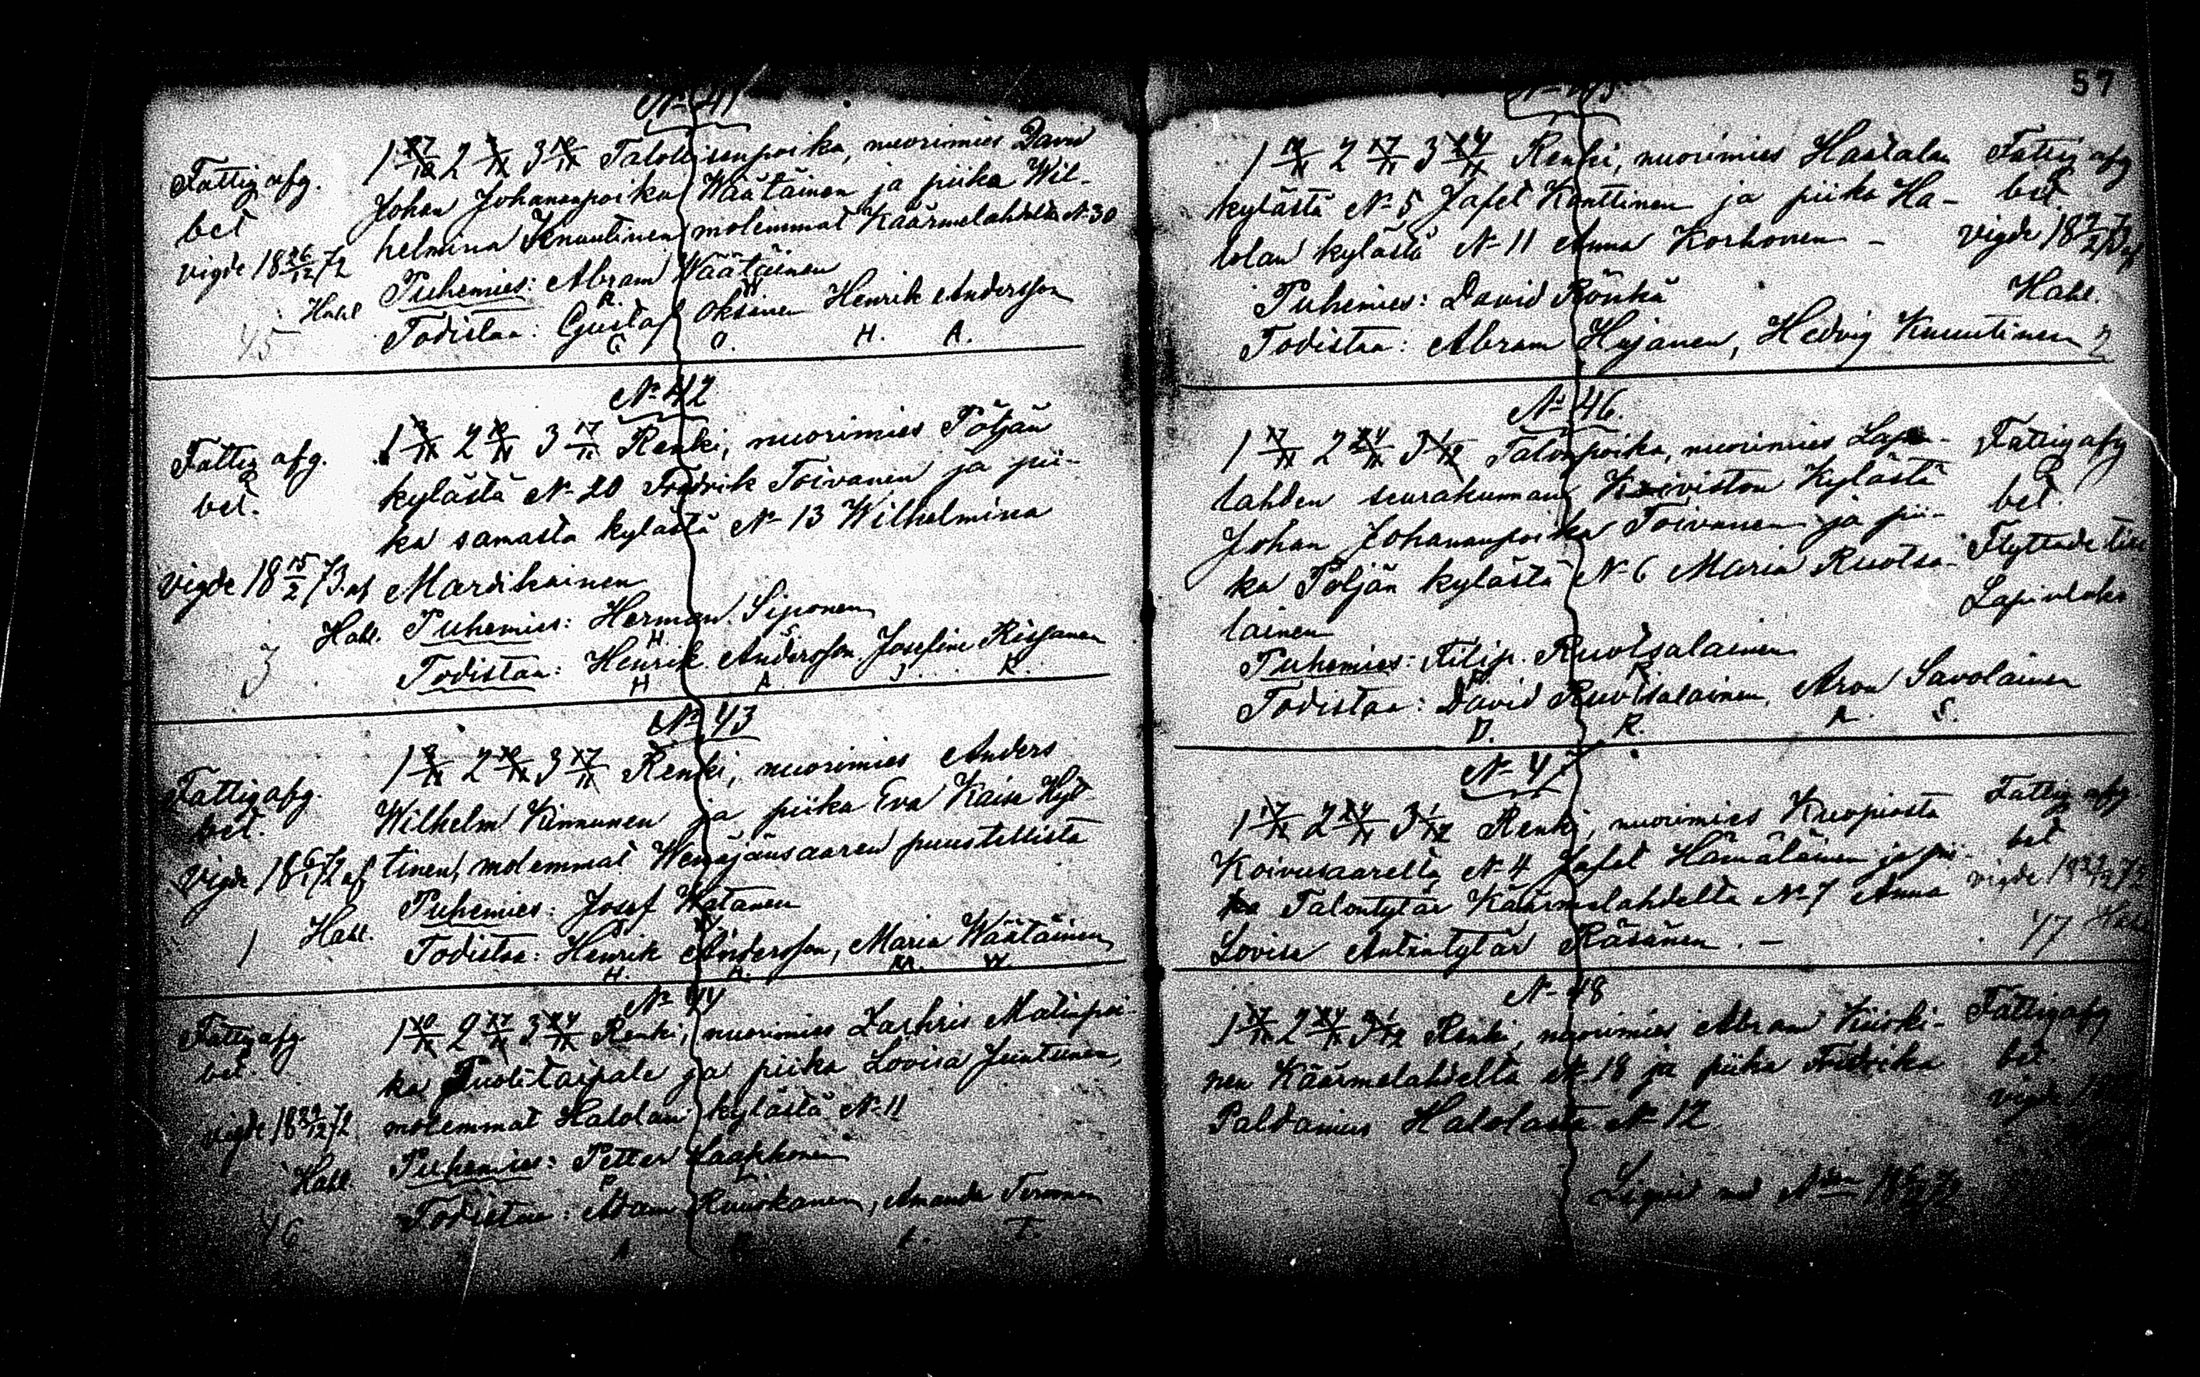 57
N 41
1 27/10 2 3/11 3 10/11 Talollisenpoika, nuorimies David
Johan Johananpoika Wäätäinen ja piika Wil-
helmina Knuutinen molemmat Käärmelahdelta N 30
Puhemies: Abram Wäätäinen
Todistaa: Gustaf Oksanen Henrik Andersson
G. O. H. A.
Fattig afg.
bet
vigde 18 26/12 72
Hahl
45
N 42
1 3/11 2 10/11 3 17/11 Renki, nuorimies Pöljän
kylästä N 20 Fredrik Toivanen ja pii-
ka samasta kylästä N 13 Wilhelmina
Mardikainen
Puhemies: Herman Siponen
H S
Todistaa: Henrik Andersson Josefine Rissanen
H A. J. R.
Fattig afg.
bet.
vigde 18 15/2 73 af
Hahl.
3
N 43
1 3/11 2 10/11 3 17/11 Renki, nuorimies Anders
Wilhelm Kinnunen ja piika Eva Kaisa Hyt-
tinen, molemmat Wenäjänsaaren puustellista
Puhemies: Josef Watanen
Todistaa: Henrik Andersson, Maria Wäätäinen
H. A. M. W.
Fattig afg.
bet.
vigde 18 6/1 72 af
Hahl.
1
N 44
1 10/11 2 17/11 3 24/11 Renki, nuorimies Zachris Matinpoi-
ka Tuolitaipale ja piika Lovisa Juntunen,
molemmat Halolan kylästä N 11
Puhemies: Petter Laakkonen
P L
Todistaa: Adam Haukanen, Amanda
T.
Fattig afg.
bet.
vigde 18 /12 72
Hahl.
46
N 45
1 10/11 2 17/11 3 24/11 Renki, nuorimies Haatalan
kylästä N 5 Jafet Konttinen ja piika Ha-
lolan kylästä N 11 Anna Korhonen -
Puhemies: David Rönkä
Todistaa: Abram Hujanen, Hedvig Knuutinen
Fattig afg
bet.
vigde 18 2/2 73 af
Hahl.
2
N 46.
1 17/11 2 24/11 3 1/12 Talonpoika, nuorimies Lapin-
lahden seurakunnan Koiviston Kylästä
Johan Johananpoika Toivanen ja pii-
ka Pöljän kylästä N 6 Maria Ruotsa-
lainen
Puhemies: Filip. Ruotsalainen
F. R
Todistaa: David Ruotsalainen, Aron Savolainen
D. R. A. S.
Fattig afg
bet.
Flyttade till
Lapinlaks
N 47
1 17/11 2 24/11 3 1/12 Renki, nuorimies Kuopiosta
Koivusaarelta N 4 Jafet Hämäläinen ja pii-
ka Talontytär Käärmelahdelta N 7 Anna
Lovisa Antintytär Räsänen. -
Fattig afg
bet
vigde 18 /12 72
47 Hahl
N 48
1 17/11 2 24/11 3 1/12 Renki, nuorimies Abram Kiiski-
nen Käärmelahdelta N 18 ja piika Fredrika
Paldanius Halolasta N 12
Fattig afg
bet.
vigde